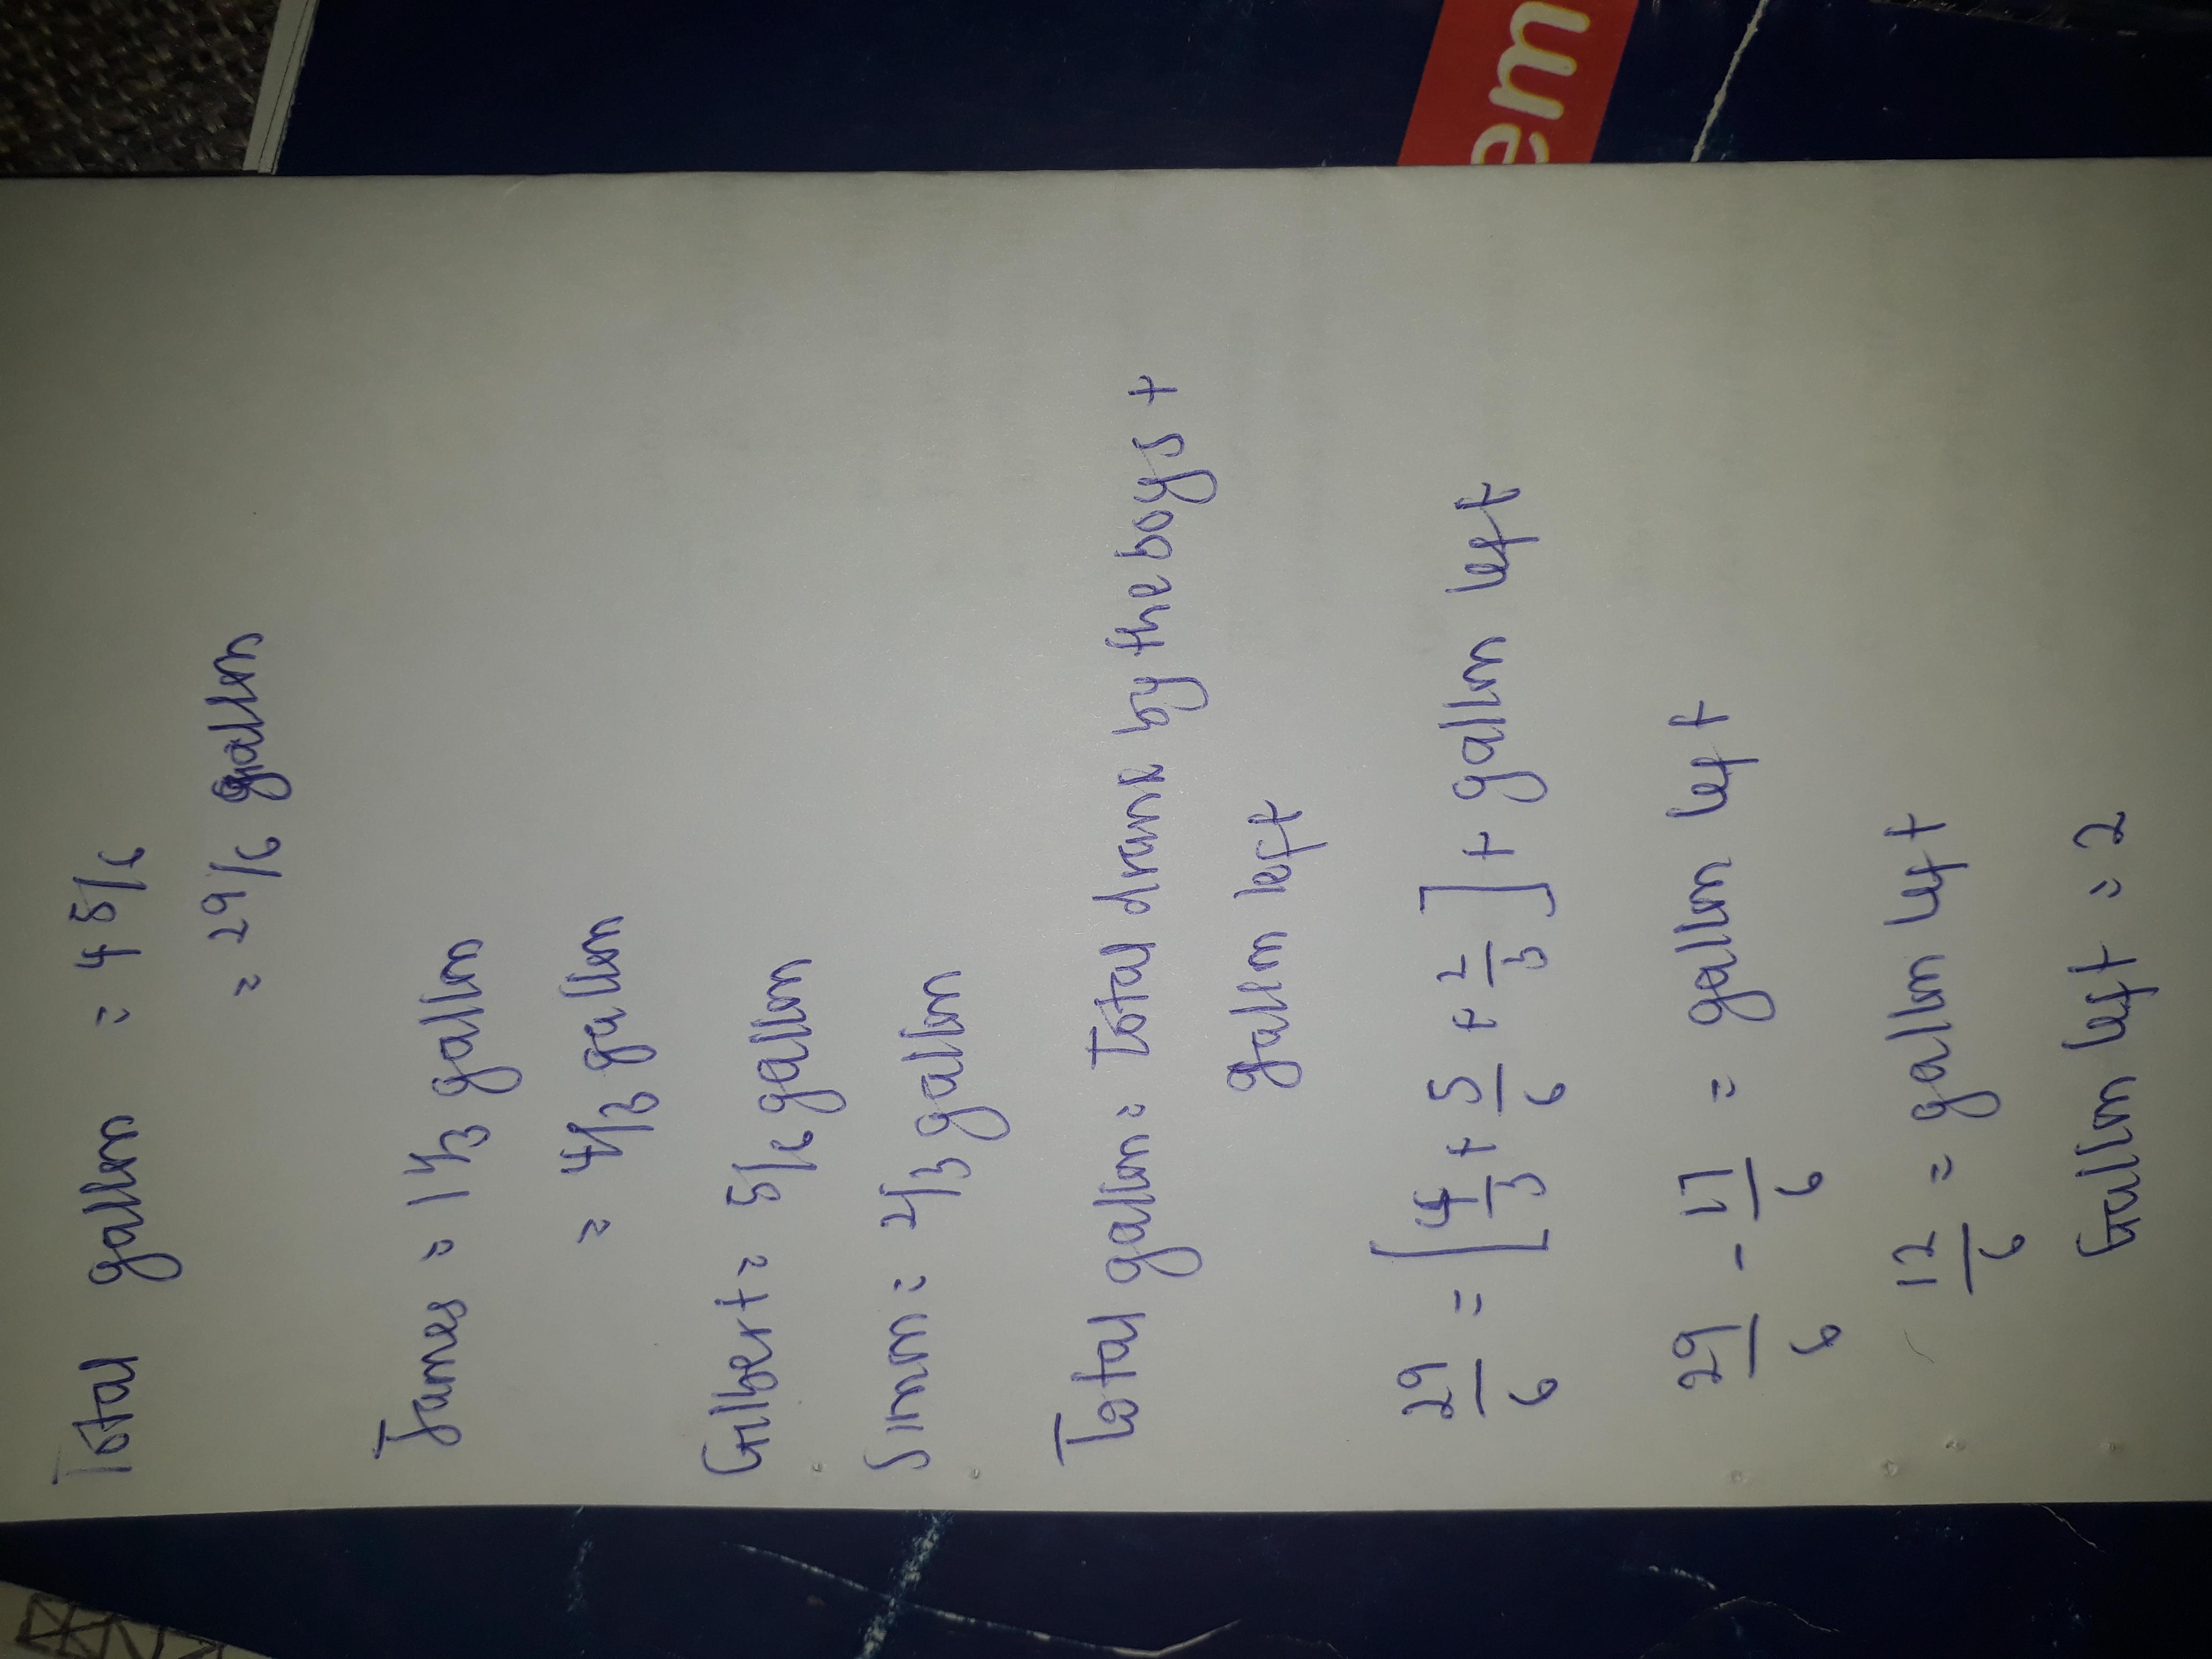 em
Total gallon = 4 5/6
= 29/6 gallon
James = 1 1/3 gallon
= 4/3 gallon
Gilbert = 5/6 gallon
Simon = 2/3 gallon
Total gallon = Total drank by the boys +
gallon left
29/6 = [4/3 + 5/6 + 2/3] + gallon left
29/6 - 17/6 = gallon left
12/6 = gallon left
Gallon left = 2